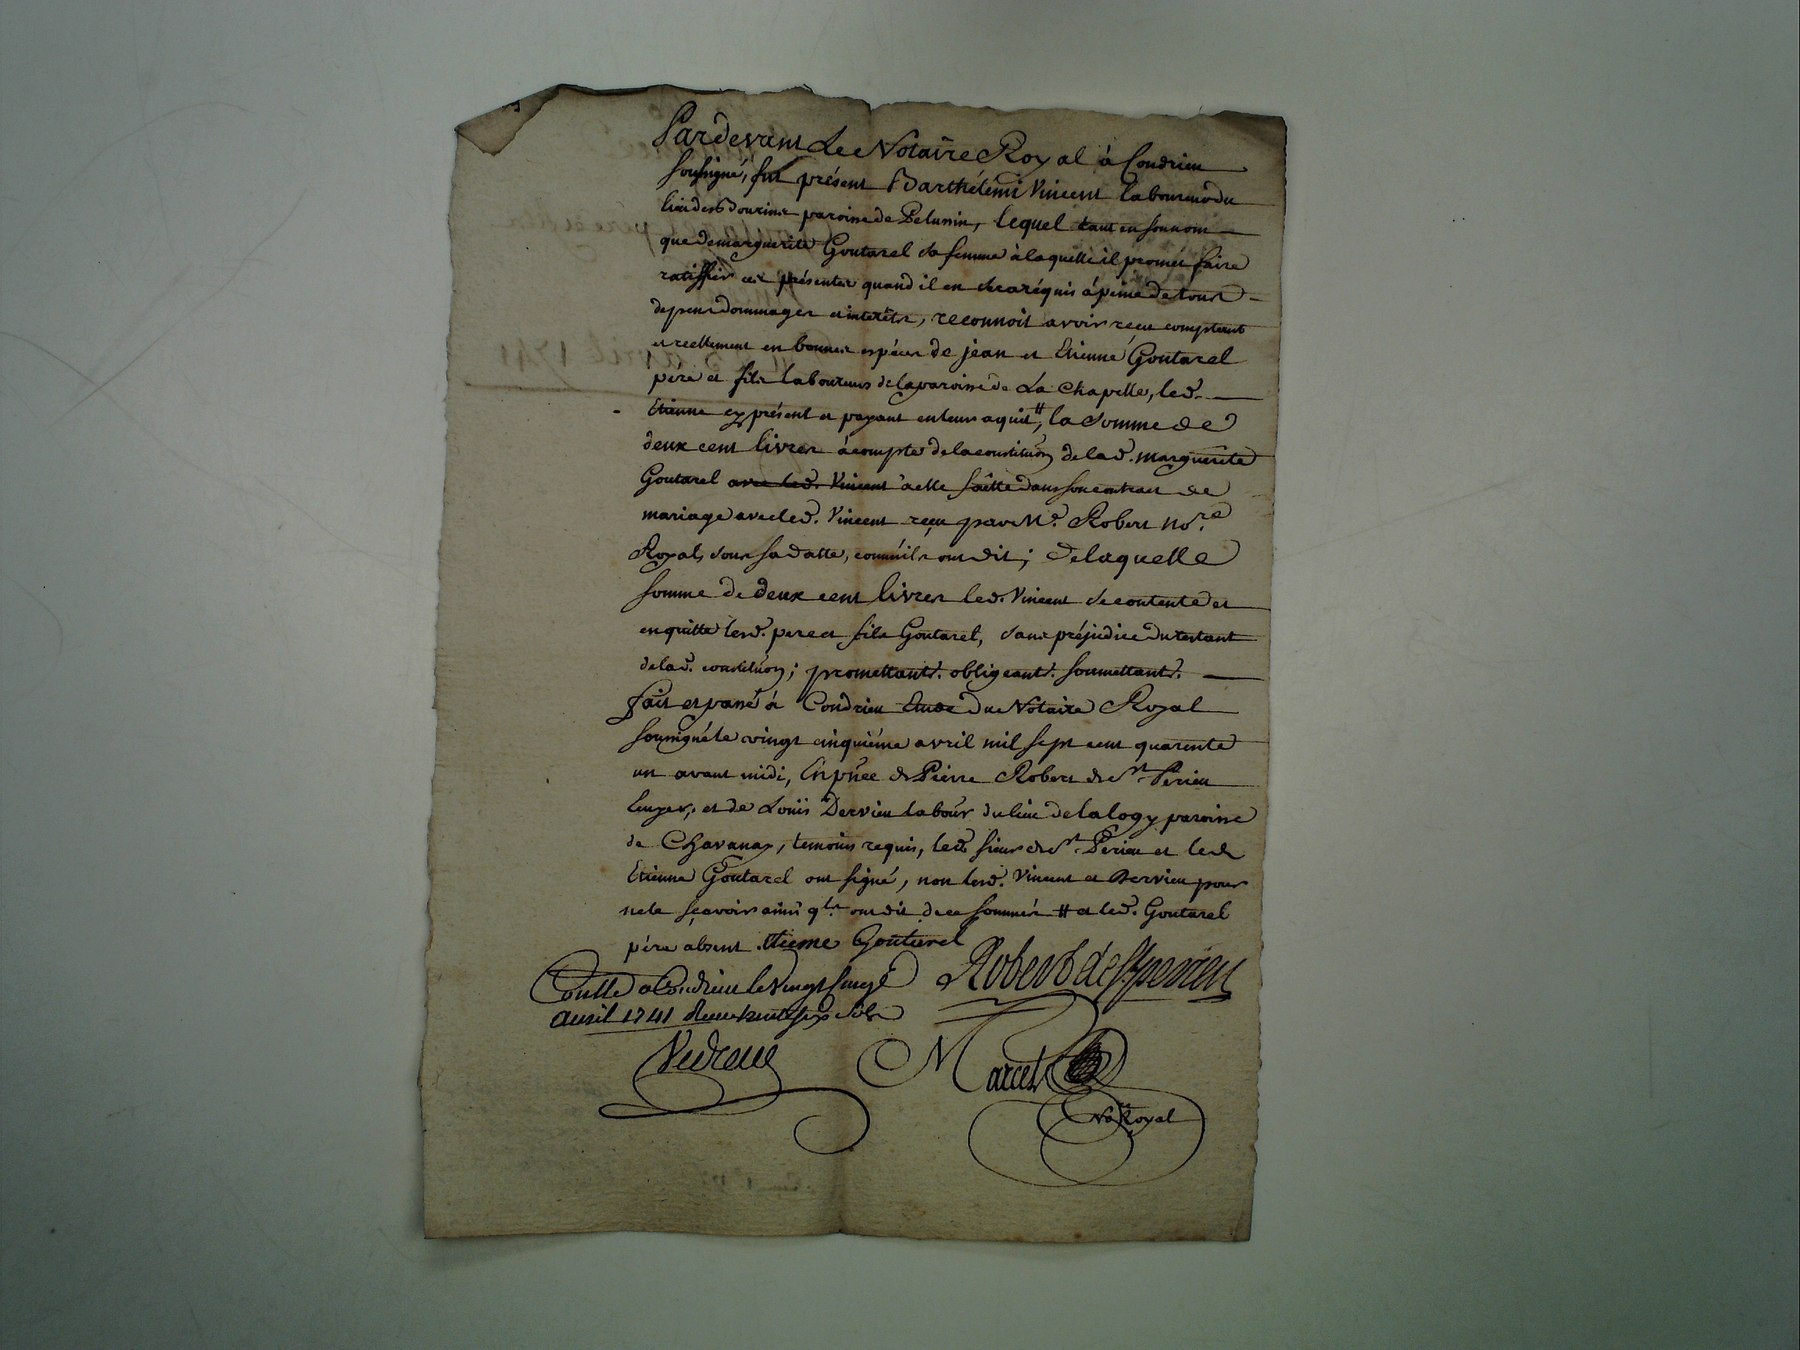 Pardevant Le Notaire Royal à Condrieu
soussigné, fut présent Barthélemi Vincent laboureur du
lieu des paroisse de Pelussin, lequel tant en son nom
que de marguerite Goutarel sa femme à laquelle il promet faire
ratiffier ces présentes quand il en sera réquis à peine de tous
depens dommages et interêts, reconnoit avoir reçu comptant
et reellement en bonnes espéces de jean et Etienne Goutarel
pere et fils laboureurs de la paroisse de La Chapelle, led.
Etienne cy présent et payant en leur aquit #, la somme de
deux cent livres àcompte de la constituõn de lad. marguerite
Goutarel avec led. Vincent à elle faitte dans son contract de
mariage avec led. Vincent reçu par Me. Robert nore.
Royal, sous sa datte, comm'ils ont dit; de laquelle
somme de deux cent livres led. Vincent se contente et
en quitte lesd. pere et fils Goutarel, sans préjudice du restant
de lad. constituõn; promettant. obligeant. soumettant.
fait et passé à Condrieu Etude du Notaire Royal
soussigné le vingt cinquiéme avril mil sept cent quarente
un avant midi, En pñce de Pierre Robert de St. Perieu
et de Louis Dervieu labour du lieu de la logy paroisse
de Chavanay, temoins requis, led. sieur de St. Perieu et led.
Etienne Goutarel ont signé, non lesd. Vincent et Dervieu pour
ne le sçavoir ainsi qls. ont dit de ce sommés # et led. Goutarel
père absent. Etieme Goutarel
Robert de St perieu
Conllé a Condrieu le vingt
avril 1741 Reçu sols
Marcel
No Royal